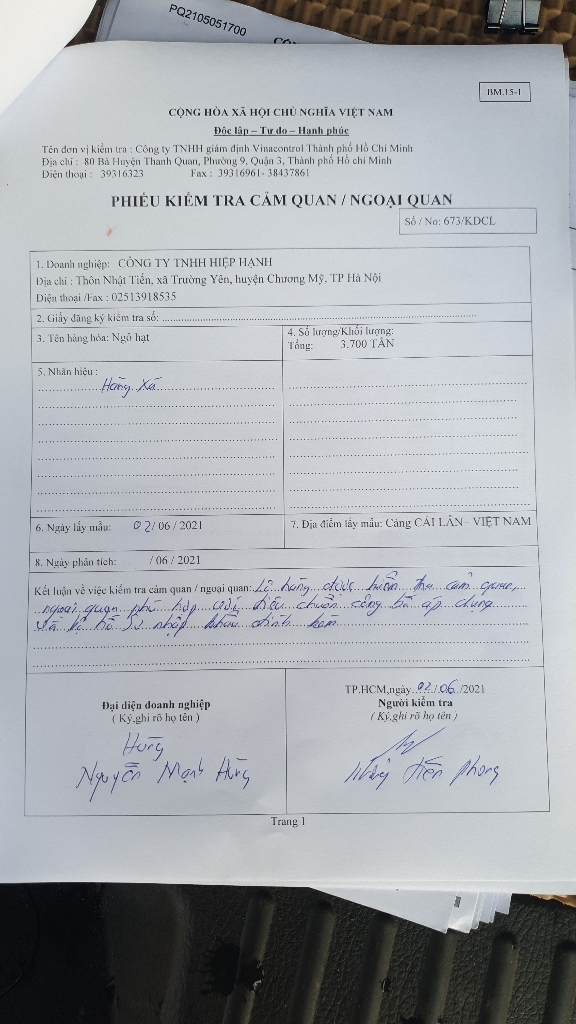 PQ2105051700
BM.15-1
CỘNG HÒA XÃ HỘI CHỦ NGHĨA VIỆT NAM
Độc lập – Tự do – Hạnh phúc
Tên đơn vị kiểm tra : Công ty TNHH giám định Vinacontrol Thành phố Hồ Chí Minh
Địa chỉ : 80 Bà Huyện Thanh Quan, Phường 9, Quận 3, Thành phố Hồ chí Minh
Điện thoại : 39316323 Fax : 39316961- 38437861
PHIẾU KIỂM TRA CẢM QUAN / NGOẠI QUAN
Số / No: 673/KDCL
1. Doanh nghiệp: CÔNG TY TNHH HIỆP HẠNH
Địa chỉ : Thôn Nhật Tiến, xã Trường Yên, huyện Chương Mỹ, TP Hà Nội
Điện thoại /Fax : 02513918535
2. Giấy đăng ký kiểm tra số:
3. Tên hàng hóa: Ngô hạt
4. Số lượng/Khối lượng:
Tổng: 3.700 TẤN
5. Nhãn hiệu :
Hàng Xá
6. Ngày lấy mẫu: 02/ 06 / 2021
7. Địa điểm lấy mẫu: Cảng CÁI LÂN– VIỆT NAM
8. Ngày phân tích: / 06 / 2021
Kết luận về việc kiểm tra cảm quan / ngoại quan: Lô hàng được kiểm tra cảm quan,
ngoại quan phù hợp với tiêu chuẩn công bố áp dụng
và hồ sơ nhập khẩu đính kèm
TP.HCM,ngày 02/06/2021
Đại diện doanh nghiệp
Người kiểm tra
( Ký,ghi rõ họ tên )
( Ký,ghi rõ họ tên )
Hùng
Nguyễn Mạnh Hùng
Tiến Phong
Trang 1